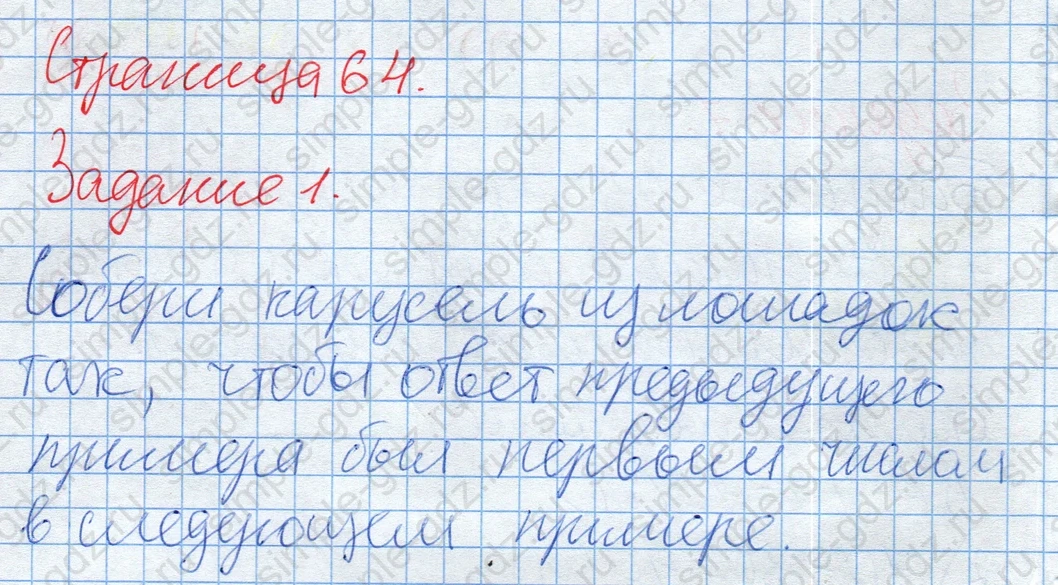 Страница 64.
Задание 1.
Собери карусель из лошадок
так, чтобы ответ предыдущего
примера был первым числом
в следующем примере.